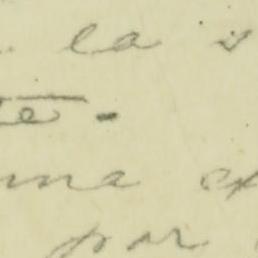 la s
te -
una ex
por